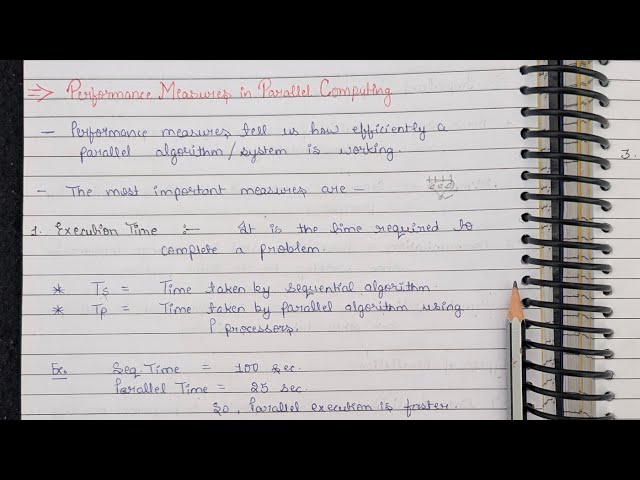 ⇒ Performance Measures in Parallel Computing
– Performance measures tell us how efficiently a
parallel algorithm/system is working.
– The most important measures are –
1. Execution Time :– It is the time required to
complete a problem.
* Ts = Time taken by sequential algorithm.
* Tp = Time taken by parallel algorithm using
P processors.
Ex. Seq. Time = 100 sec.
Parallel Time = 25 sec.
So, Parallel execution is faster.
3.